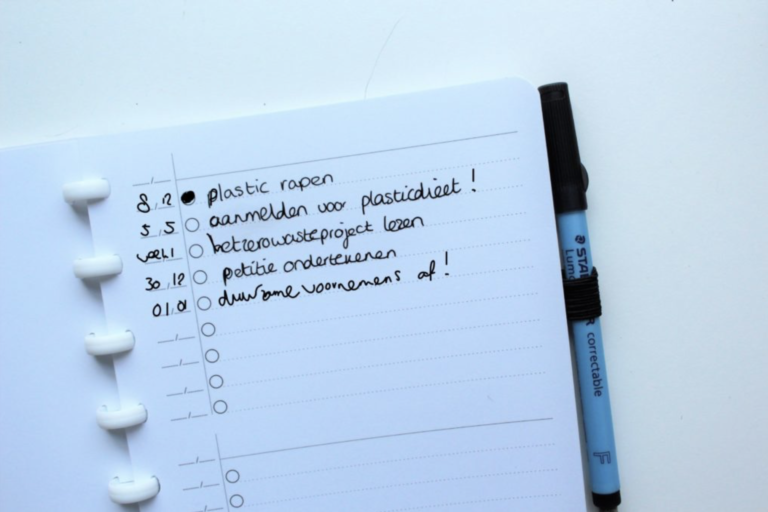 8.12 plastic rapen
5.5 aanmelden voor plasticdieet!
hetzerowasteproject lezen
30.12 petitie ondertekenen
01.01 duurzame voornemens af!
STA
Lum
R correctable
F